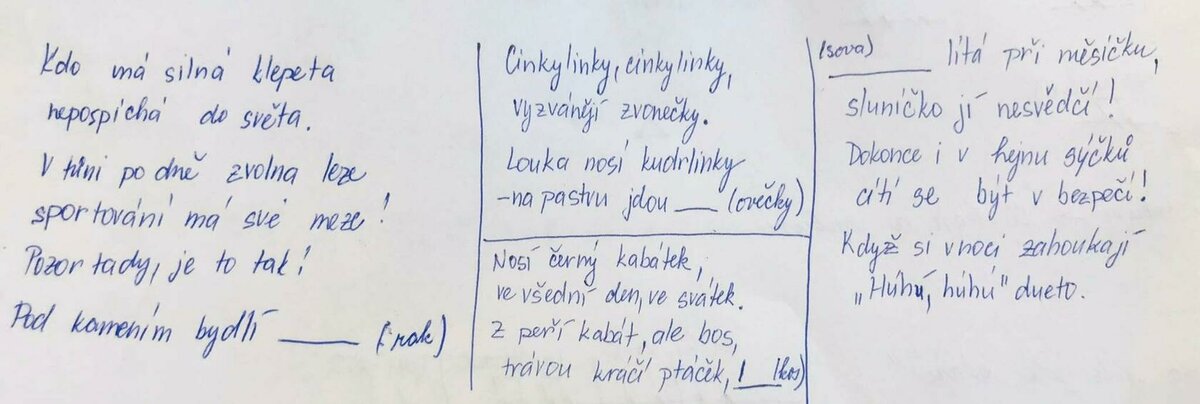 Kdo má silná klepeta
nepospíchá do světa.
V tůni po dně zvolna leze
sportování má své meze!
Pozor tady, je to tak!
Pod kamením bydlí ______ (rak)
Cinkylinky, cinkylinky,
vyzvánějí zvonečky.
Louka nosí kudrlinky
-na pastvu jdou ___ (ovečky)
Nosí černý kabátek,
ve všední den, ve svátek.
Z peří kabát, ale bos,
trávou kráčí ptáček, ___ (kos)
(sova) ______ lítá při měsíčku,
sluníčko jí nesvědčí!
Dokonce i v hejnu sýčků
cítí se být v bezpečí!
Když si v noci zahoukají
„Húhú, húhú" dueto.